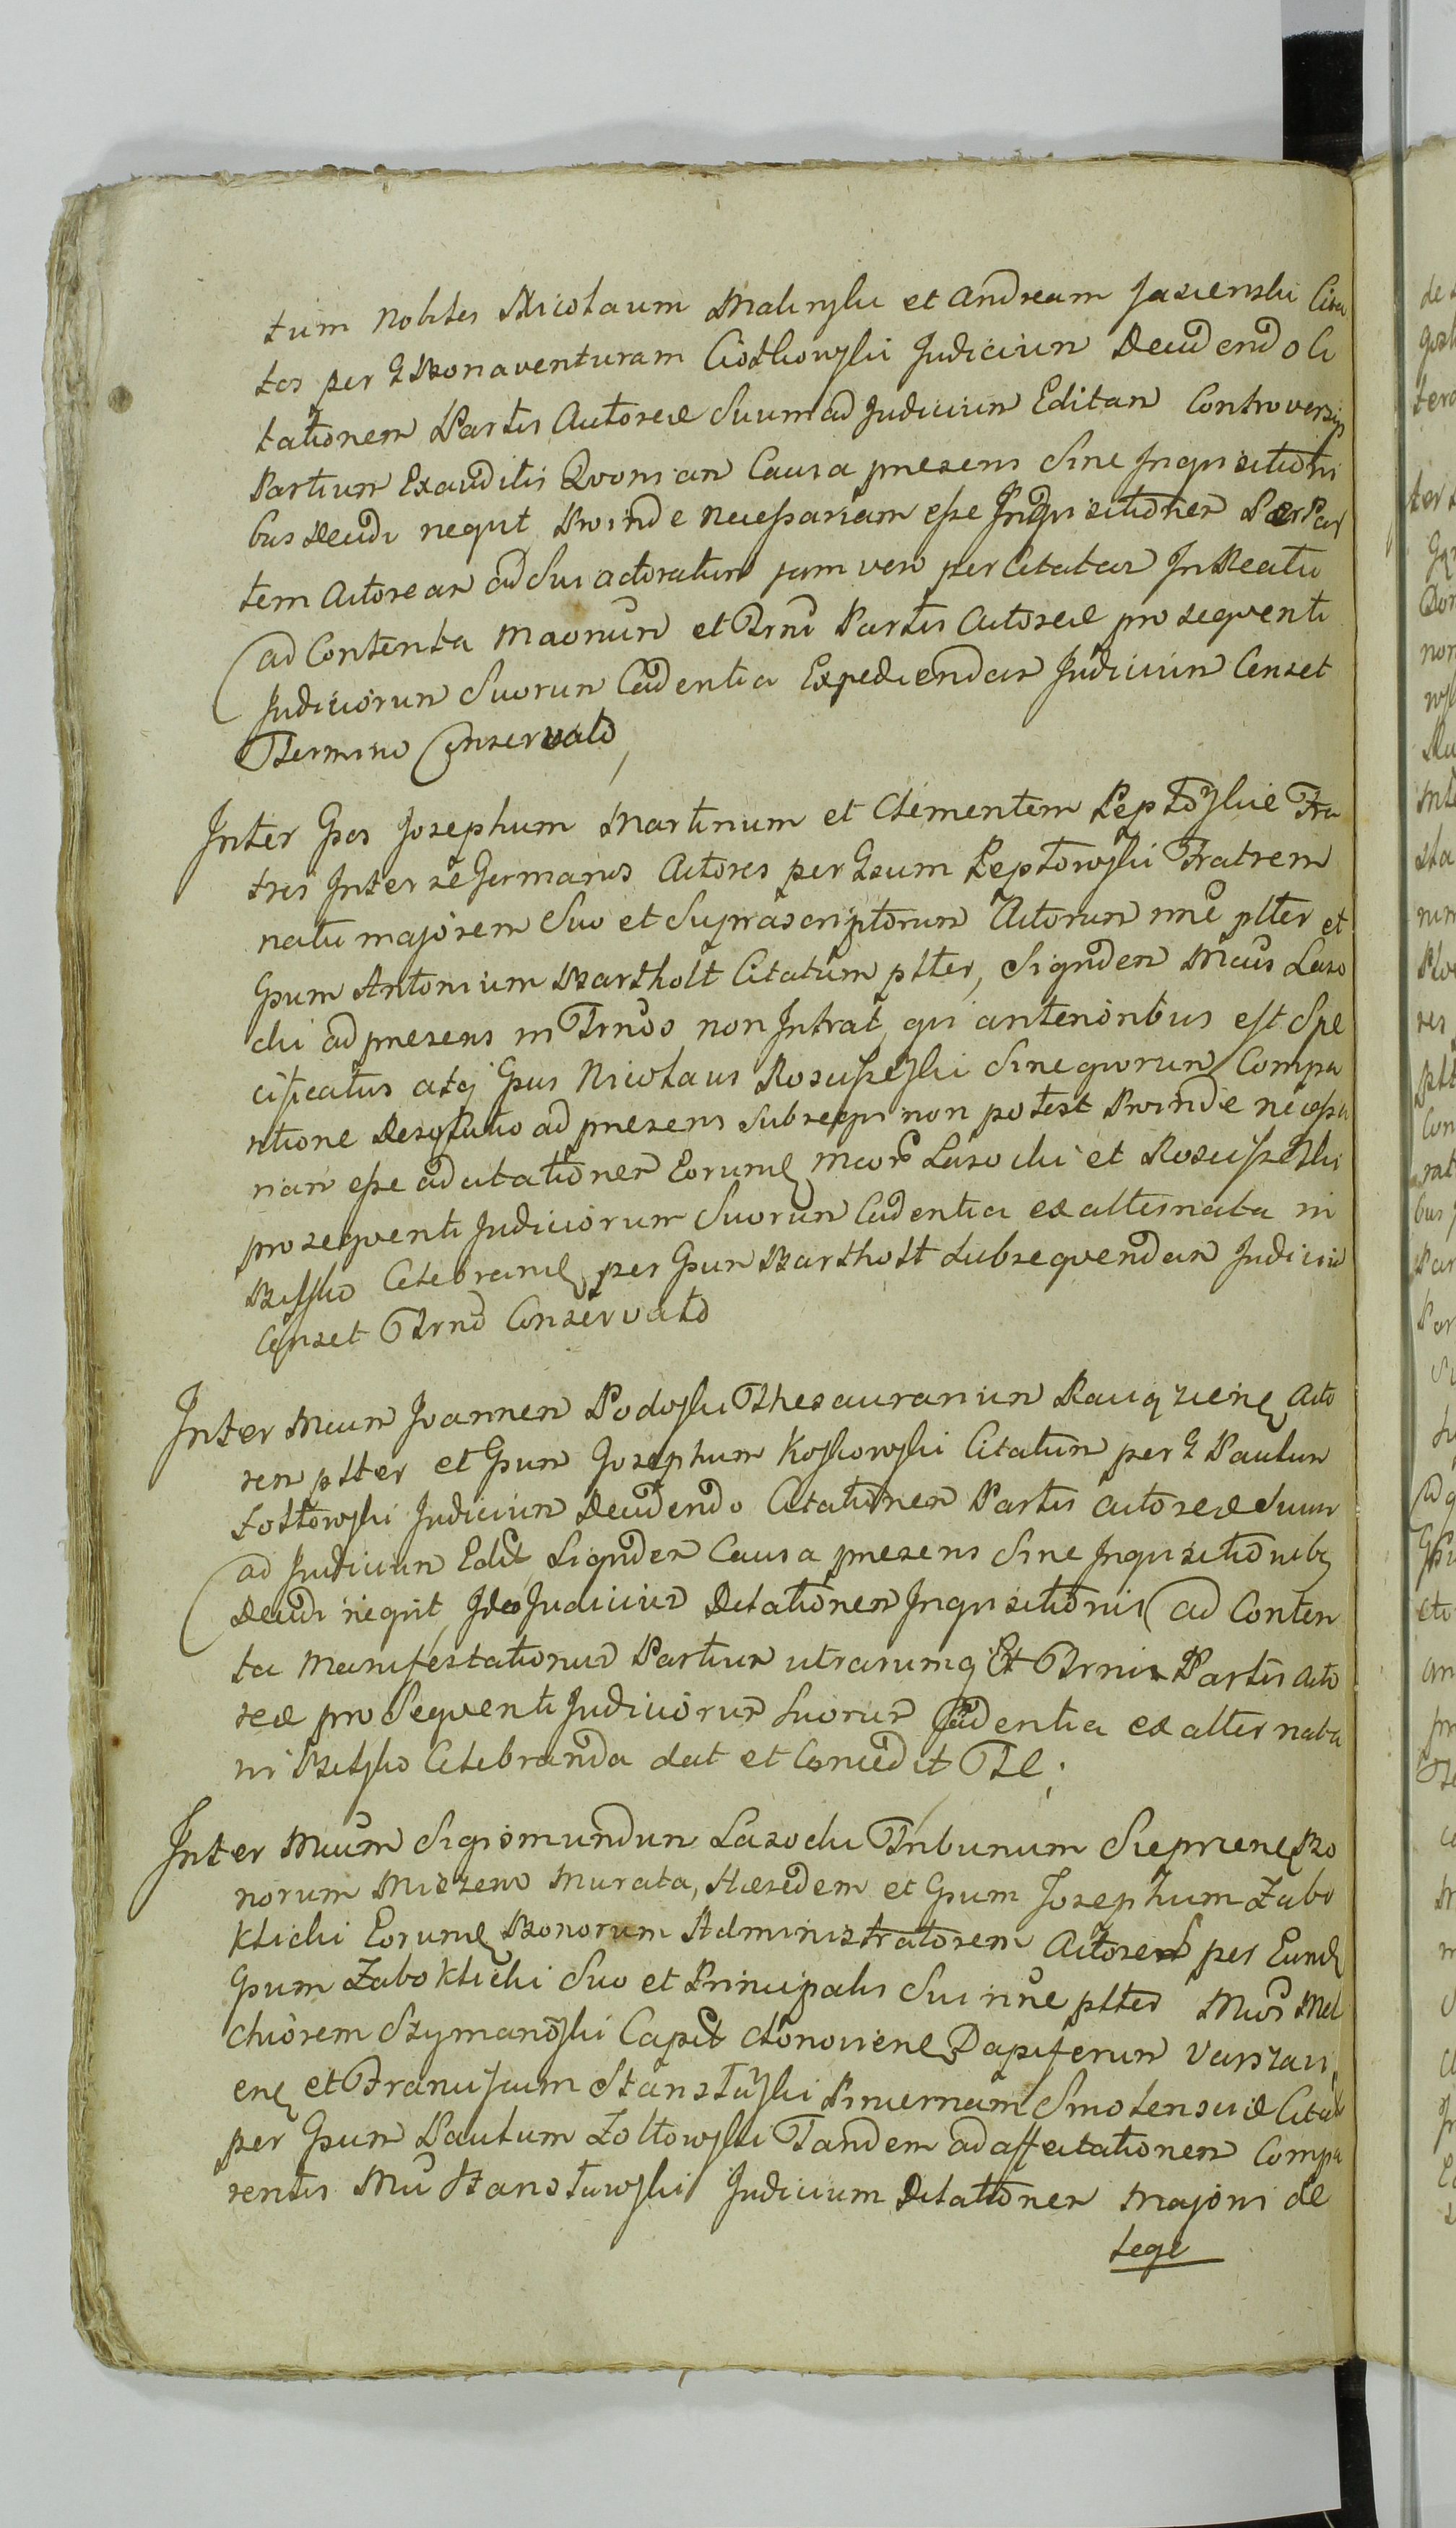 tum Nobiles Nicolaum Malinski et Andream Jasienski Cita
tos per G Bonaventuram Ciotkowski Judicium Decidendo Ci
tationem Partis Actoreæ Suum ad Judicium Editam Controversijs
Partium Exauditis Qvoniam Causa præsens Sine Inqvisitioni
bus decidi neqvit Proinde necessariam esse Inqvisitionem Per Par
tem Actoream ad Sui actoratum jam vero per Citatas In Reatu
ad Contenta Maonum et Trni Partis Actoreæ pro seqventi
Judiciorum Suorum Cadentia Expediendam Judicium Censet
Termino Conservato,
Inter Gsos Josephum Martinum et Clementem Leptoskie Fra
tres Inter se Germanos Actores per Gsum Leptowski Fratrem
natu majorem Suo et Suprascriptorum Actorum nne plter et
Gsum Antonium Bartholt Citatum plter, Siqvdem Mcus Laso
cki ad præsens in Trnos non Intrat, qvi anterioribus est Spe
cificatus atq Gsus Nicolaus Rosciszeski Sine qvorum Compa
ritione Resolutio ad præsens Subseqvi non potest Proinde necessa
riam esse adcitationem Eorund Mcor Lasocki et Rosciszeski
pro seqventi Judiciorum Suorum Cadentia ex alternata in
Bielsko Celebrand per Gsum Bartholt Subseqvendam Judicium
Censet Trno Conservato
Inter Mcum Joannem Podoski Thesaurarium Raciązien Acto
rem plter et Gsum Josephum Koskowski Citatum per G Paulum
Zoltowski Judicium Decidendo Citationem Partis actoreæ Suum
ad Judicium Edit, Siqvdem Causa præsens Sine Inqvisitionib
Decidi neqvit, Ideo Judicium Dilationem Inqvisitionis ad Conten
ta Manifestationum Partium utrarumq Et Trni Partis Acto
reæ pro Seqventi Judiciorum Suorum Cadentia ex alternata
in Bielsko Celebranda dat et Concedit Tle;
Inter Mcum Sigismundum Lasocki Tribunum Sieprcen Bo
norum Miszewo Murata, Hæredem et Gsum Josephum Zabo
klicki Eorund Bonorum Administratorem Actores per Eund
Gsum Zaboklicki Suo et Principalis Sui nne plter Mcos Mel
chiorem Szymanoski Capit Klonovien Dapiferum Varszavi
en et Franciscum Stanstaski Pincernam Smolensciæ Citat
per Gsum Paulum Zoltowski Tandem ad affectationem Compa
rentis Mci Stanstawski Judicium Dilationem Majori de
lege